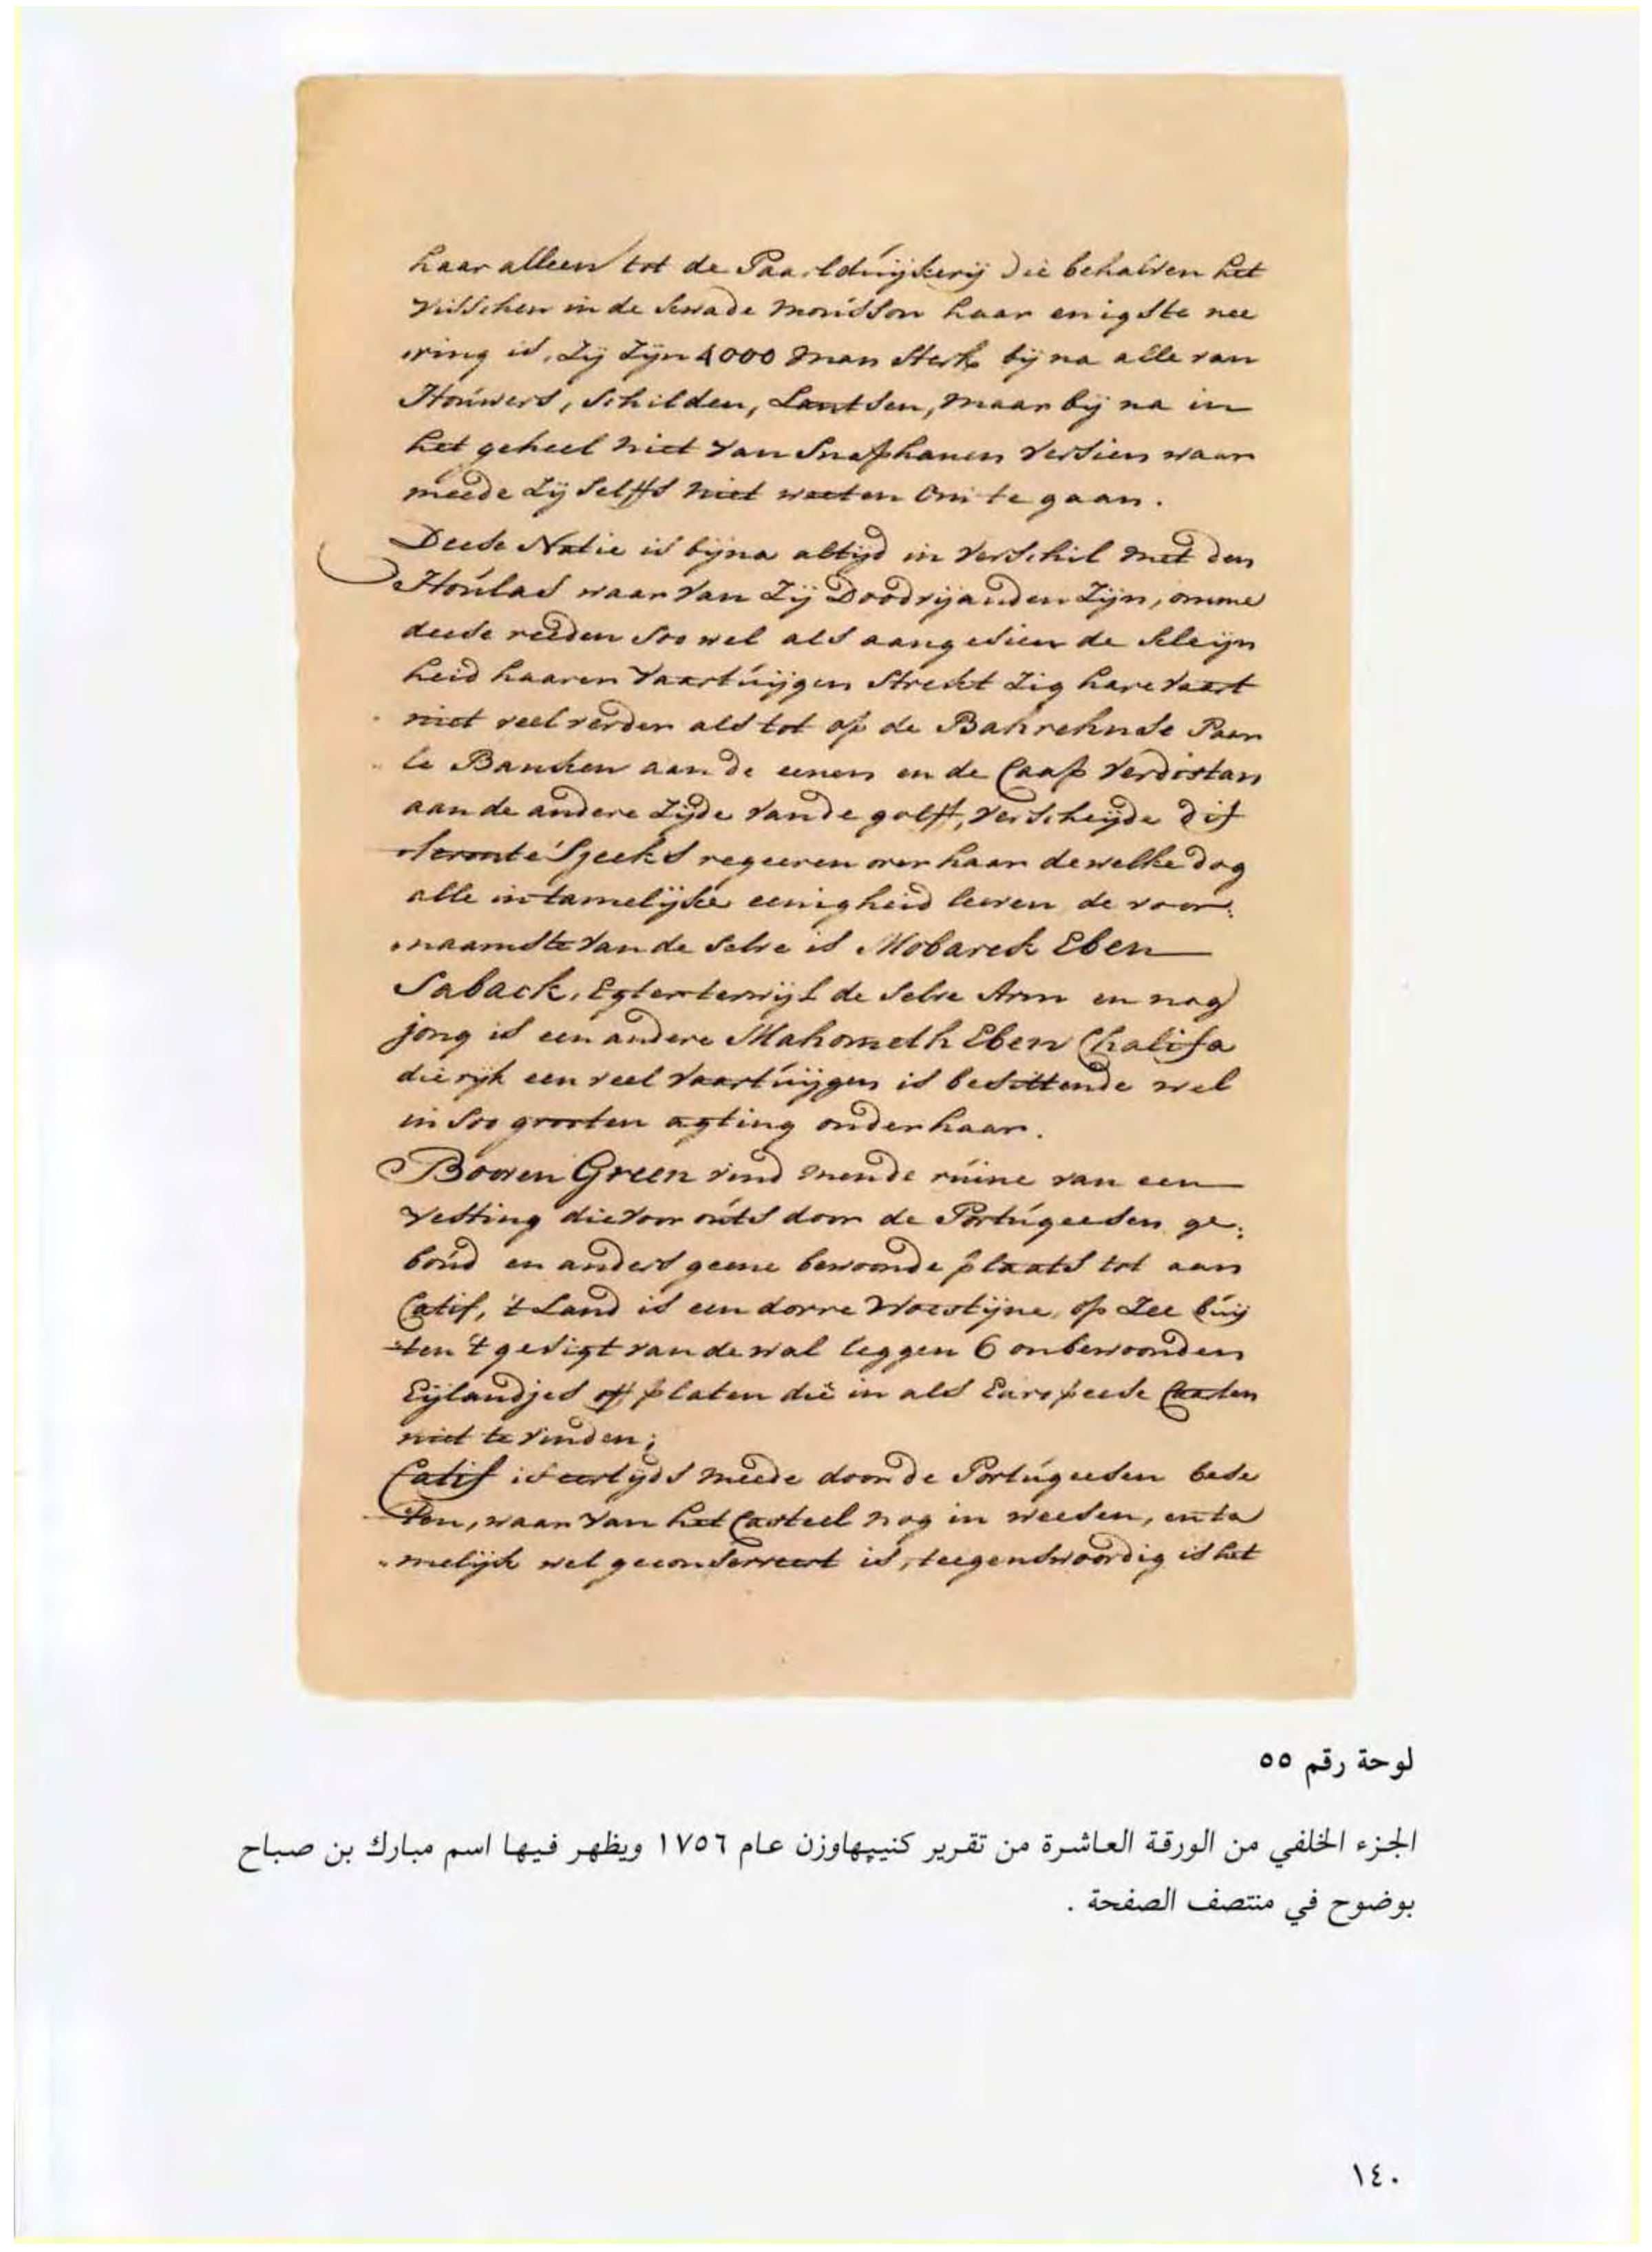 haar alleen tot de Paarlduijkerij die behalven het
visschen in de kwade mousson haar enigste nee
ring is, Zij Zijn 4000 man sterk bij na alle van
Houwers, schilden, Lantsen, maar bij na in
het geheel niet van Snaphanen versien waar
meede Zij selffs niet weeten om te gaan.
Deese Natie is bijna altijd in verschil met den
Houlas waar van Zij Doodvijanden Zijn, omme
deese reeden soo wel als aangesien de kleijn
heid haaren vaartuijgen strekt Zig hare vaart
niet veel verder als tot op de Bahrehnse Paar
le Banken aan de eenen en de Caap Verdistan
aan de andere Zijde van de golff, verscheijde dif
ferente Sjeeks regeeren over haar dewelke dog
alle in tamelijke eenigheid leeven de voor:
naamste van de selve is Mobarek Eben
Saback, Egter terwijl de selve Arm en nog
jong is een andere Mahometh Eben Chalifa
die rijk een veel vaartuijgen is besittende wel
in soo grooten agting onder haar.
Boven Green vind men de ruine van een
vesting die voor outs door de Portugeesen ge:
boud en anders geene bewoonde plaats tot aan
Catif, 't Land is een dorre Woestijne, op Zee buij
ten 't gesigt van de wal leggen 6 onbewoonden
Eijlandjes off platen die in als Europeese Caarten
niet te vinden;
Catif is eertijds meede door de Portugeesen bese
ten, waar van het Casteel nog in weesen, en ta
melijk wel geconserveert is, teegenswoordig is het
لوحة رقم ٥٥
الجزء الخلفي من الورقة العاشرة من تقرير كنيپهاوزن عام ١٧٥٦ ويظهر فيها اسم مبارك بن صباح
بوضوح في منتصف الصفحة .
١٤٠